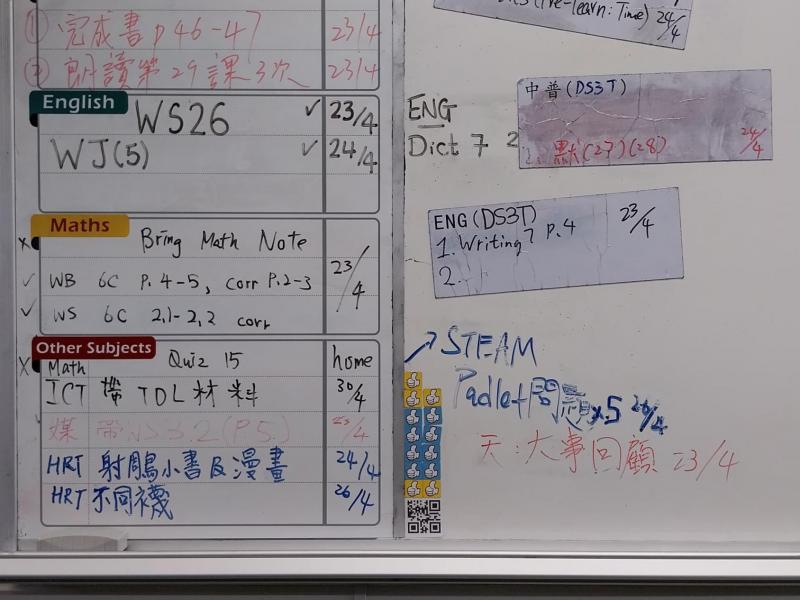 ① 完成書 p 46-47 23/4
② 朗讀第29課3次 23/4
English
WS26 ✓ 23/4
WJ(5) ✓ 24/4
Maths
x Bring Math Note
✓ WB 6C P.4-5, corr P.2-3 23/4
✓ WS 6C 2.1-2.2 corr
Other Subjects
x Math Quiz 15 home
ICT 帶 TDL材料 30/4
媒 帶 3.2 (P5.)
HRT 射鵰小書及漫畫 24/4
HRT 不同襪 26/4
(Pre-learn: Time) 24/4
ENG
Dict 7
中普(DS3T)
2. 默(27)(28) 24/4
ENG(DS3T) 23/4
1. Writing 7 P.4
2.
STEAM
Padlet 問題x5 26/4
天: 大事回顧 23/4